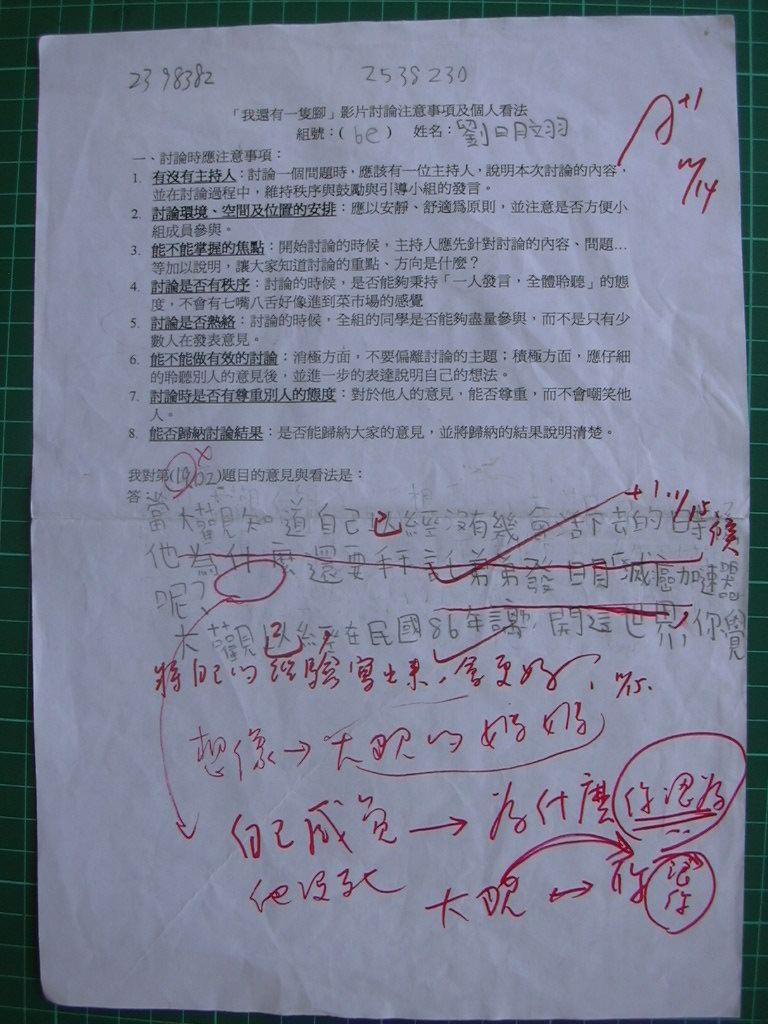 2398382 2539230
「我還有一隻腳」影片討論注意事項及個人看法
組號：( 6e ) 姓名：劉
A+1
11/14
一、討論時應注意事項：
1. 有沒有主持人：討論一個問題時，應該有一位主持人，說明本次討論的內容，
並在討論過程中，維持秩序與鼓勵與引導小組的發言。
2. 討論環境、空間及位置的安排：應以安靜、舒適為原則，並注意是否方便小
組成員參與。
3. 能不能掌握的焦點：開始討論的時候，主持人應先針對討論的內容、問題…
等加以說明，讓大家知道討論的重點、方向是什麼？
4. 討論是否有秩序：討論的時候，是否能夠秉持「一人發言，全體聆聽」的態
度，不會有七嘴八舌好像進到菜市場的感覺
5. 討論是否熱絡：討論的時候，全組的同學是否能夠盡量參與，而不是只有少
數人在發表意見。
6. 能不能做有效的討論：消極方面，不要偏離討論的主題；積極方面，應仔細
的聆聽別人的意見後，並進一步的表達說明自己的想法。
7. 討論時是否有尊重別人的態度：對於他人的意見，能否尊重，而不會嘲笑他
人。
8. 能否歸納討論結果：是否能歸納大家的意見，並將歸納的結果說明清楚。
我對第( )題目的意見與看法是：
答：
當大觀知道自己已經沒有幾會活下去的時候
他為什麼還要拜託弟弟
呢？
大觀已經在民國86年 開這世界，你覺
將自己的經驗寫出來，會更好。 11/15.
想像→大觀的媽媽
自己 → 為什麼 你認為
他沒死
大觀 ↔ 你